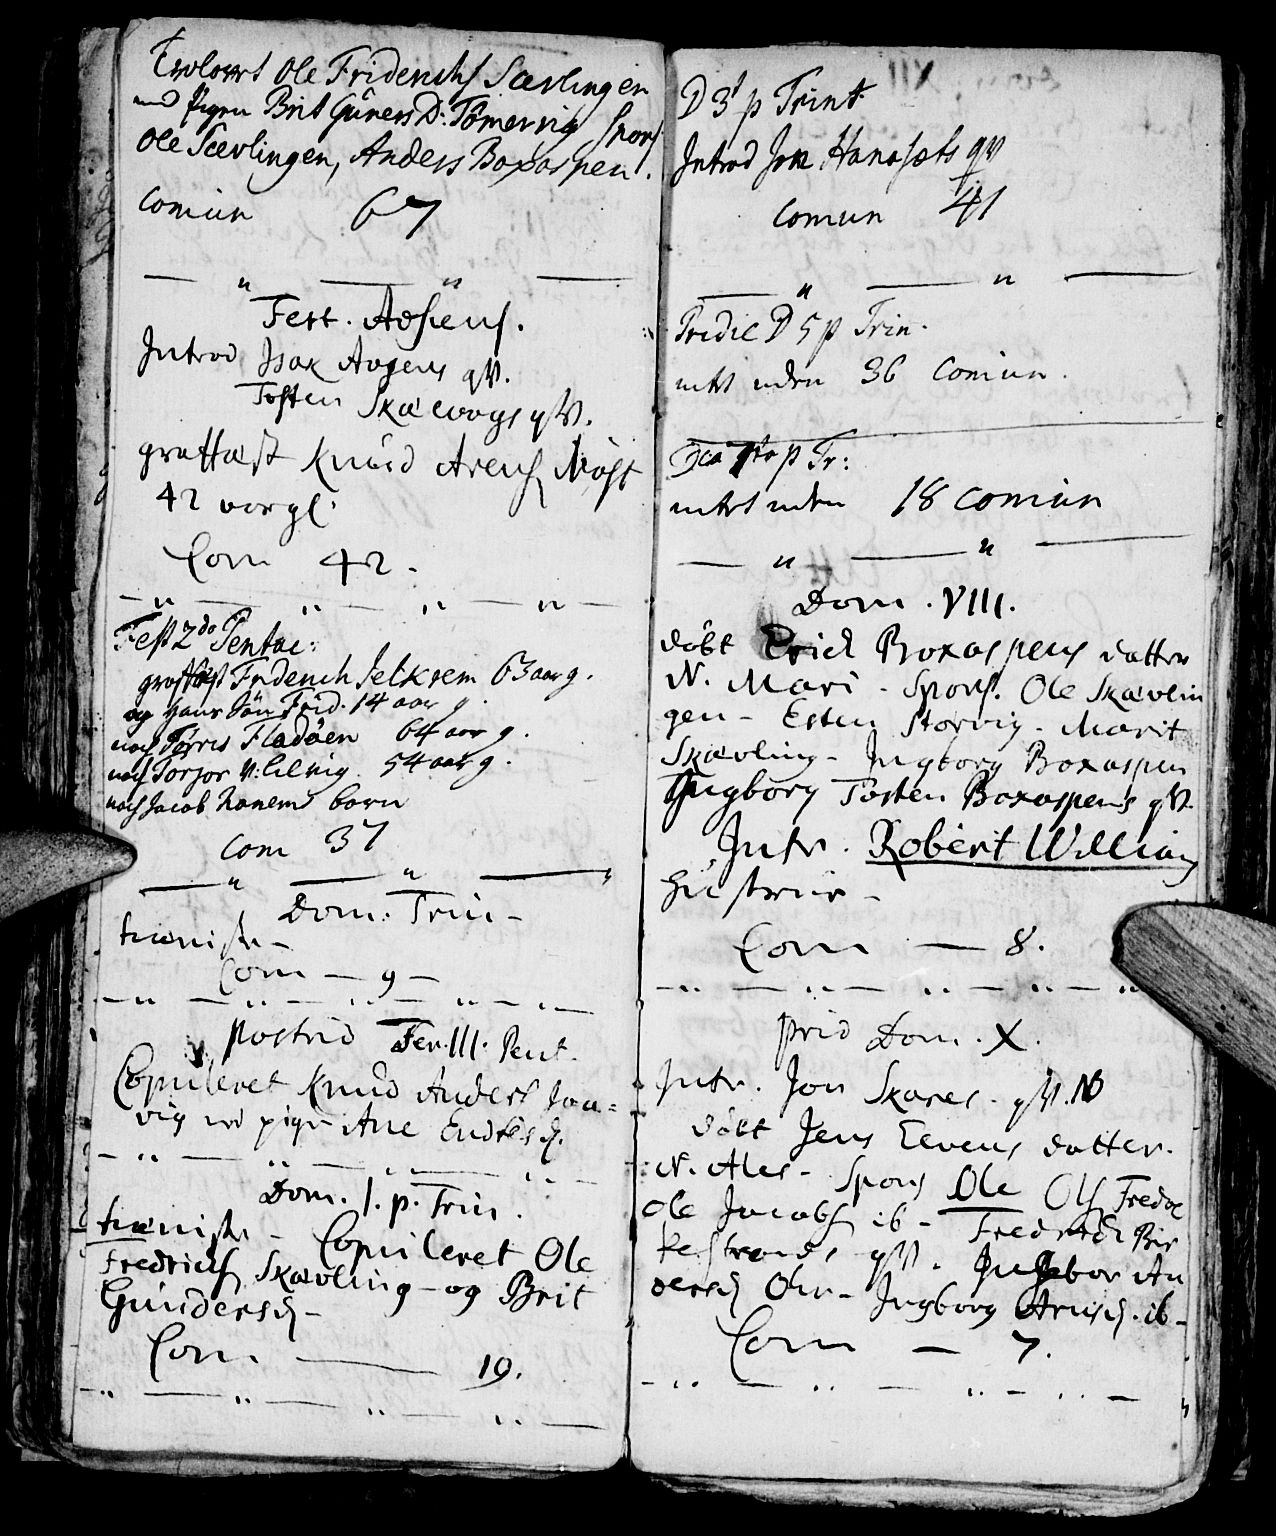 Trolovet Ole Fridericks Scevlingen
med Pigen Brit Guners D: Tømervig Spons
Ole Scevlingen, Anders Boxaspen.
Comun 67
Fest. Adscens.
Introd Isax Avgens qV.
Tosten Skævaags qV.
graffæst Knud Arens Møst
42 vorgl.
Com 42.
Fest 2do Pentac:
graffæst Friderich Selkrem 63 aar g.
og hans Sön Frid. 14 aar g.
noch Tørris Fladöen 64 aar g.
noch Torjor 54 aar g.
noch Jacob Hanems barn
Com 37
Dom. Trin -
tieniste -
Com - 9 -
postrid Fer. III. Pent.
Copuleret Knud Anders
vig med pige Ane Endresd.
Dom. 1. p. Trin.
tieniste - Copuleret Ole
Fredrichs Skævling - og Brit
Gundersd -
Com 19.
D 3 p Trint.
Introd Jon Hanasets qV
Comun 41
Tredie D 5 p Trin.
36 Comun.
p Tr:
18 Comun
Dom. VIII.
döbt Erich Boxaspens datter
N. Mari - Spons. Ole Skævlin
gen - Esten Storvig - Marit
Skævling - Ingborg Boxaspen
Ingborg Tosten Boxaspens qV.
Intr. Robert William
hustrue -
Com - 8.
prid Dom. X.
Intr. Jon Skares - qV.
döbt Jens Eevens datter.
N. Ales - Spons Ole Ols Fredøe
Ole Jacobs ib - Fredrich Bir
kestrands qV. Ingebor An
dersd - Ingborg Arnsd. ib -
Com - 7.